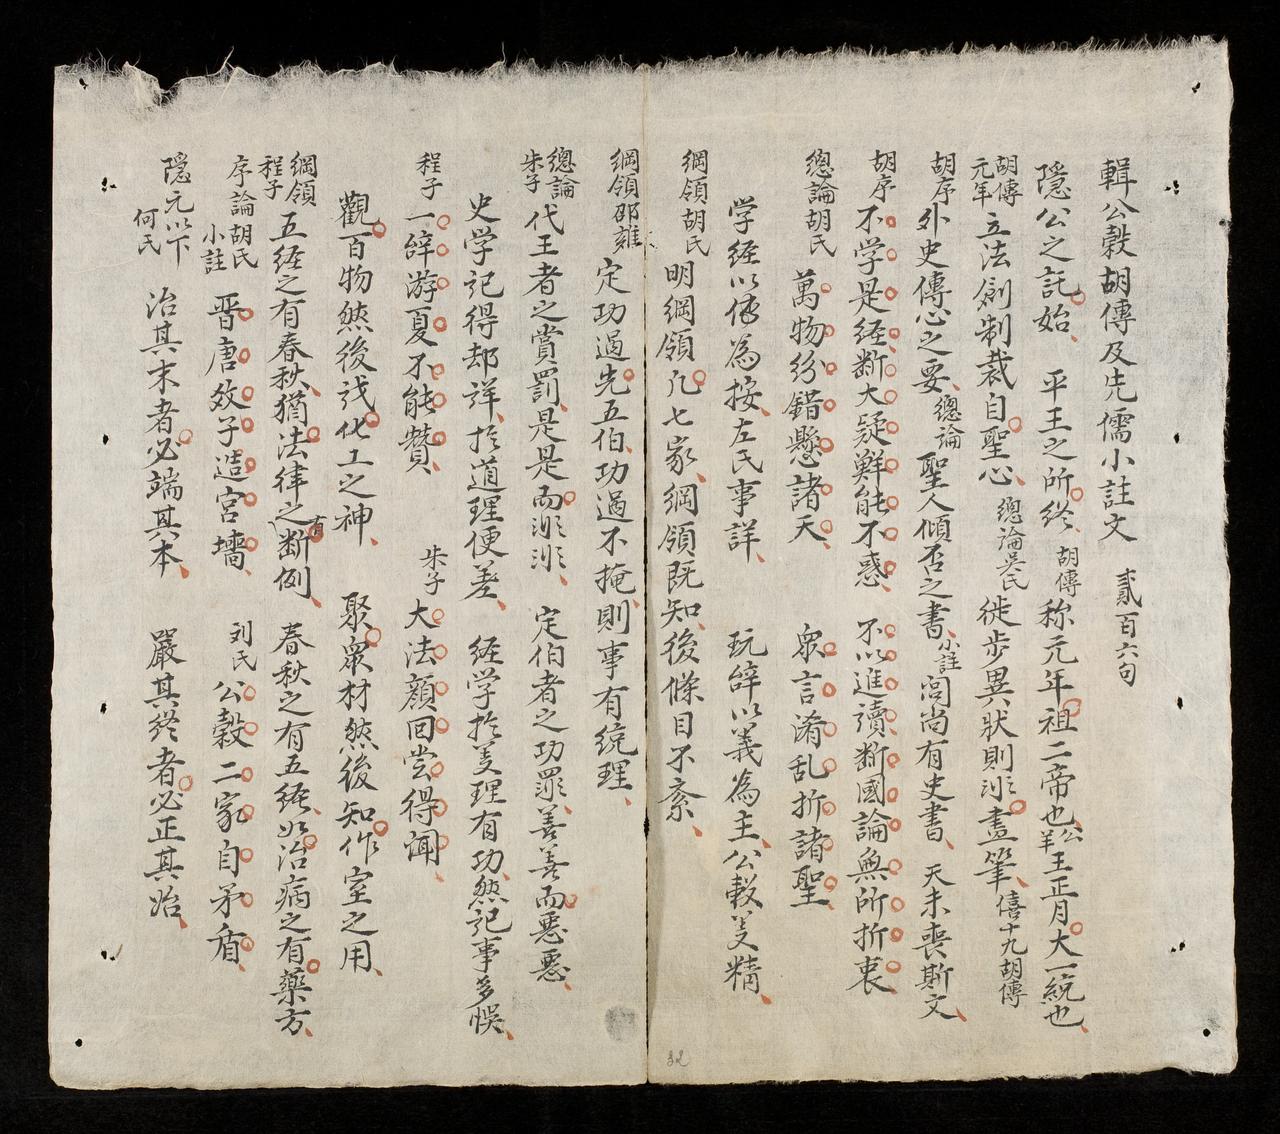 輯公穀胡傳及先儒小註文 貳百六句
隱公之託始 平王之所終 胡傳 称元年祖二帝也 公羊 王正月大一統也
胡傳元年 立法創制裁自聖心 總論吴氏 徙步異狀則非畫筆 僖十九胡傳
胡序 外史傳心之要 總論 聖人傾否之書 小註 閭尚有史書 天未喪斯文
胡序 不学是経断大疑鮮能不惑 不以進讀断國論無所折衷
總論胡氏 萬物紛錯懸諸天 衆言淆乱折諸聖
学経以傳為按左氏事詳 玩辞以義為主公穀羙精
綱領胡氏 明綱領凡七家綱領既知後條目不紊
綱領邵雍 定功過先五伯功過不掩則事有統理
總論朱子 代王者之賞罰是是而非非 定伯者之功罪善善而惡惡
史学記得却詳扵道理便差 経学扵羙理有功然記事多悞
程子 一辞游夏不能賛 朱子 大法顔回尝得闻
觀百物然後識化工之神 聚衆材然後知作室之用
綱領程子 五経之有春秋猶法律之有断例 春秋之有五経如治病之有藥方
序論胡氏小註 晋唐效子造宮墻 刘氏 公穀二家自矛盾
隱元以下何氏 治其末者必端其本 嚴其終者必正其始
32